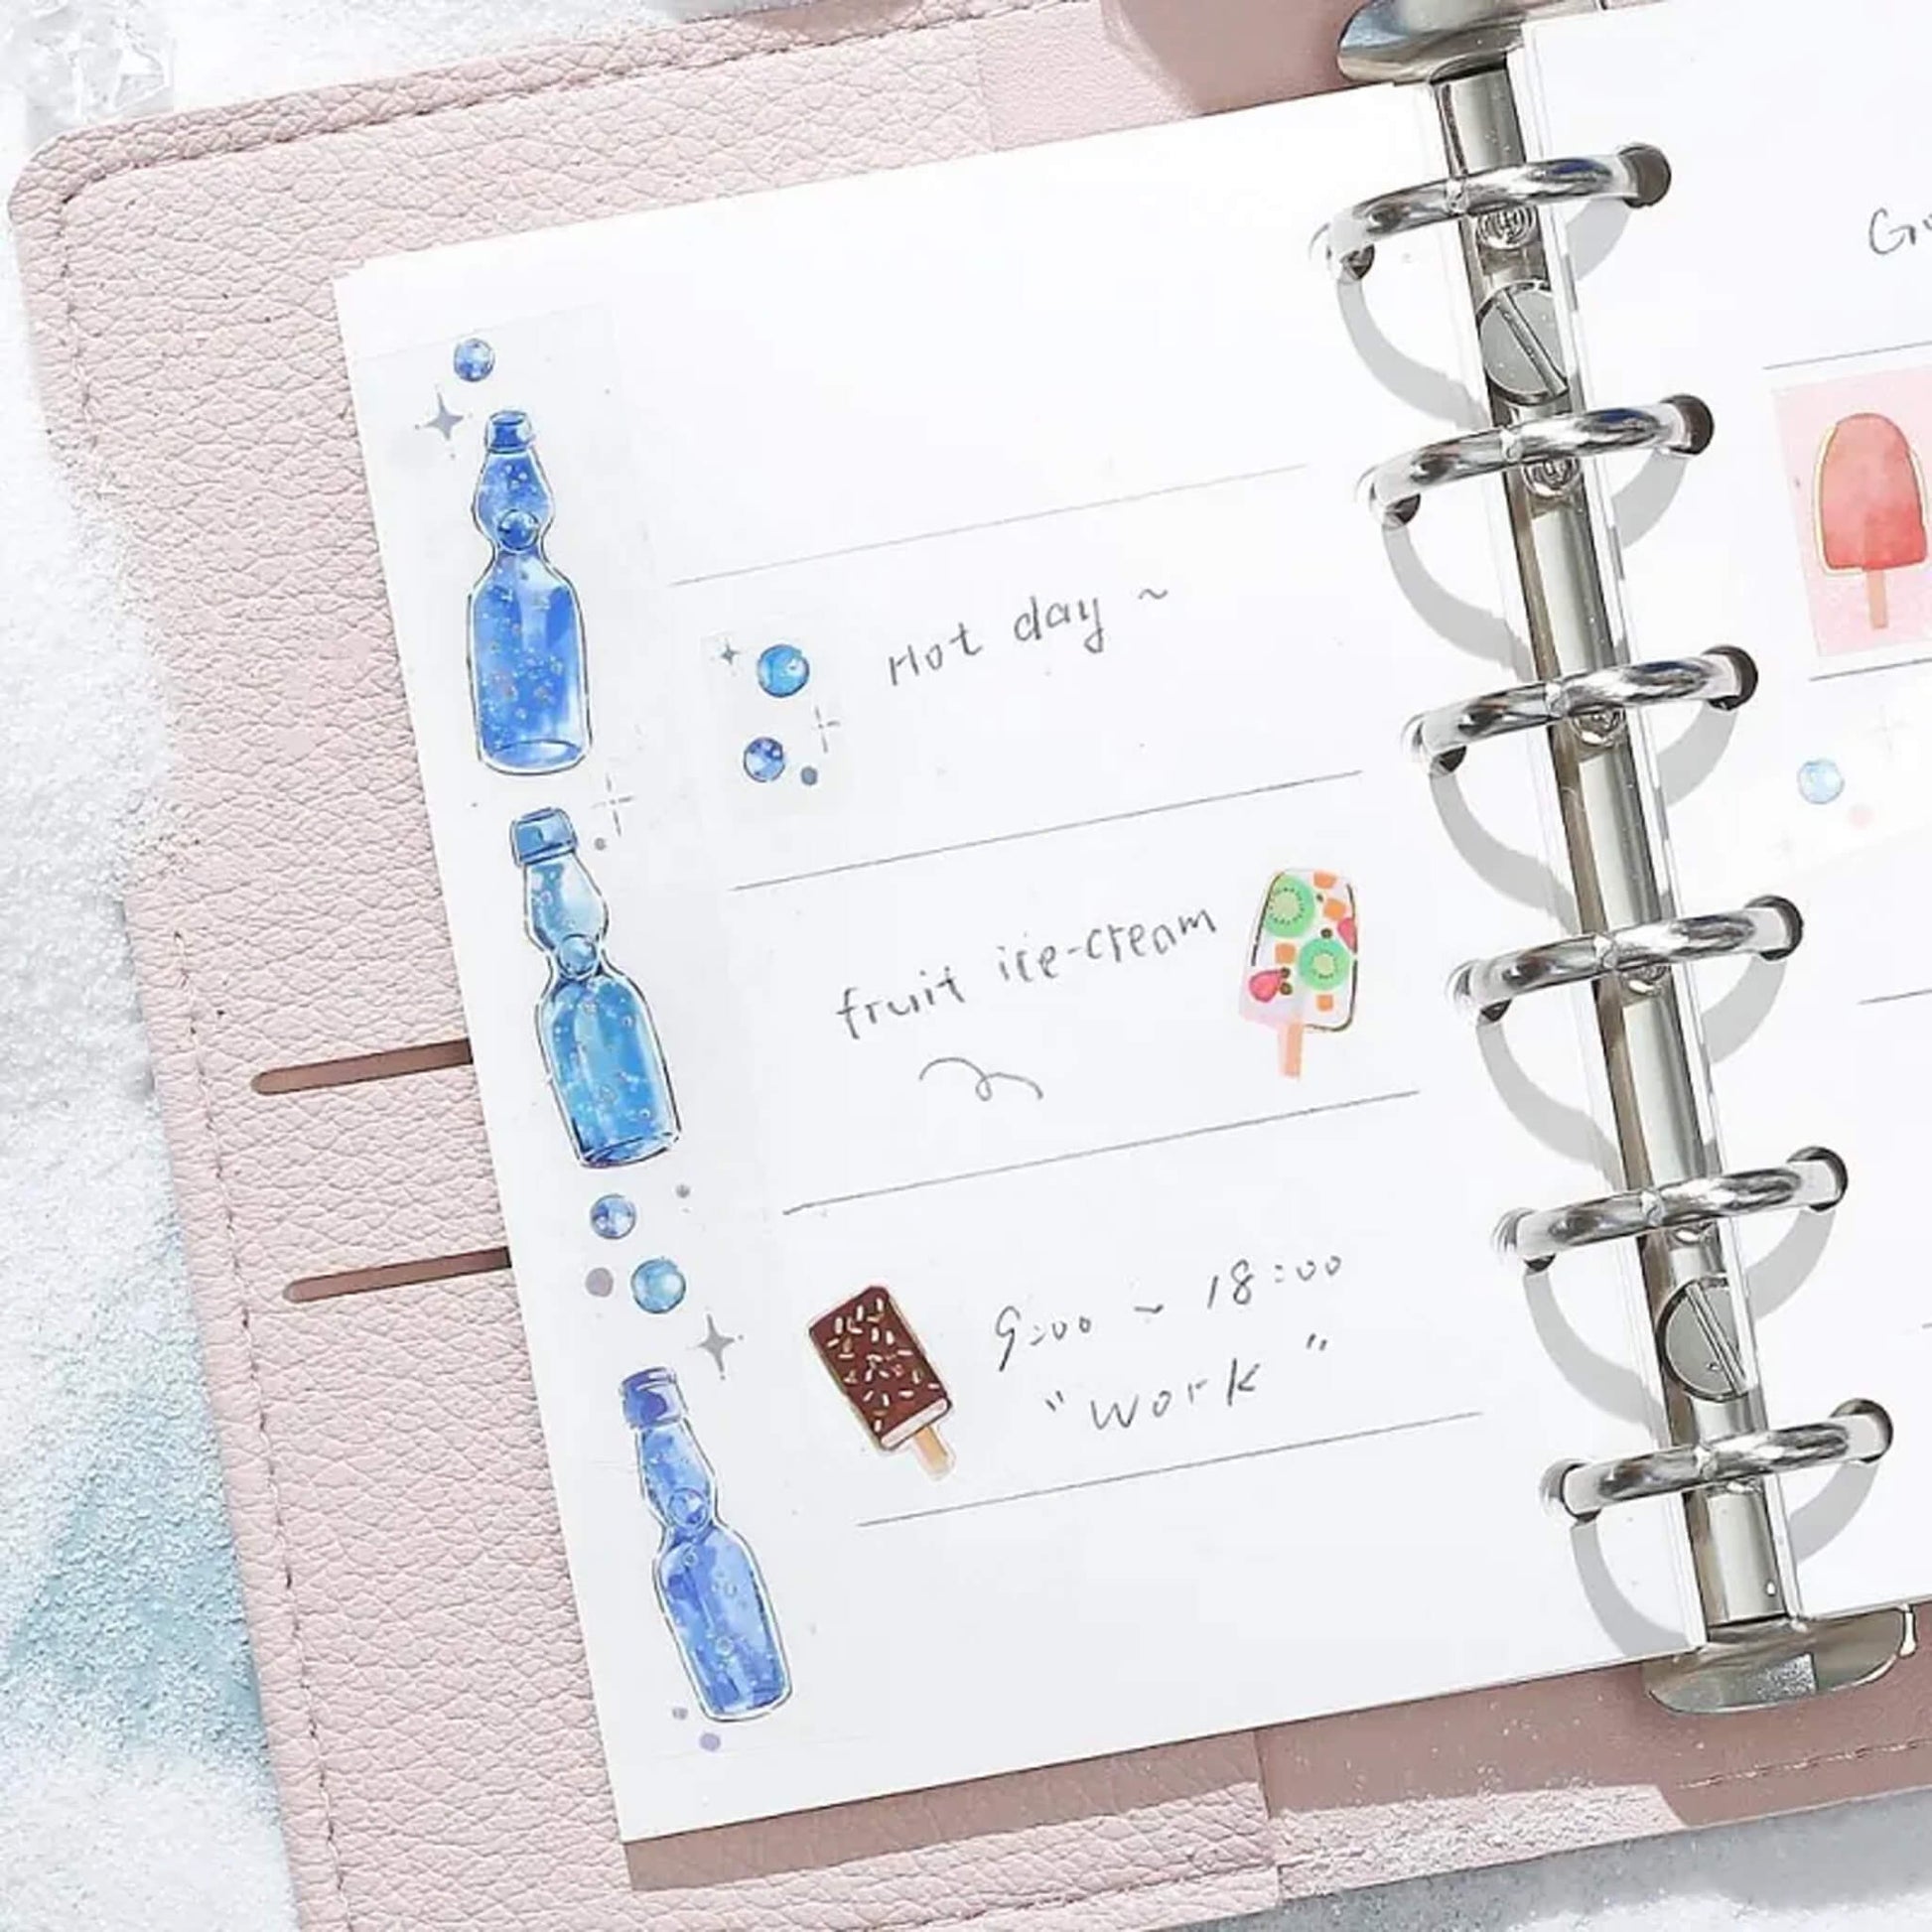 Hot day ~
fruit ice-cream
9:00 ~ 18:00
"work"